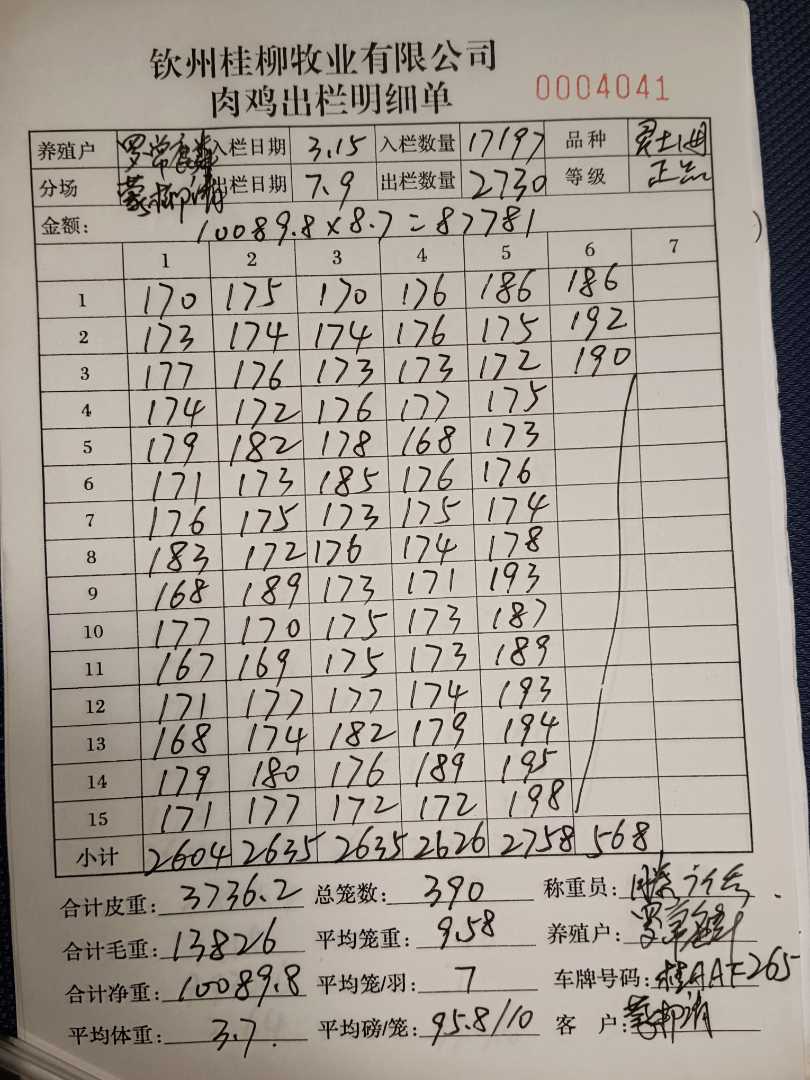 钦州桂柳牧业有限公司
肉鸡出栏明细单 0004041
养殖户 入栏日期 3.15 入栏数量 17197 品种
分场 蒙柳清 出栏日期 7.9 出栏数量 2730 等级 正品
金额: 10089.8×8.7=87781
1 2 3 4 5 6 7
1 170 175 170 176 186 186
2 173 174 174 176 175 192
3 177 176 173 173 172 190
4 174 172 176 177 175
5 179 182 178 168 173
6 171 173 185 176 176
7 176 175 173 175 174
8 183 172 176 174 178
9 168 189 173 171 193
10 177 170 175 173 187
11 167 169 175 173 189
12 171 177 177 174 193
13 168 174 182 179 194
14 179 180 176 189 195
15 171 177 172 172 198
小计 2604 2635 2635 2626 2758 568
合计皮重: 3736.2 总笼数: 390 称重员:
合计毛重: 13826 平均笼重: 9.58 养殖户:
合计净重: 10089.8 平均笼/羽: 7 车牌号码: 桂AAF265
平均体重: 3.7 平均磅/笼: 95.8/10 客 户: 蒙柳清